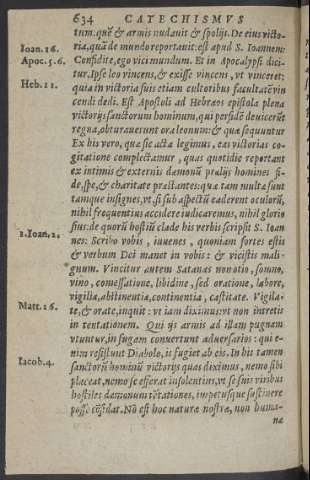 634 CATECHISMVS
tum.quē & armis nudauit & spolijs. De eius victo-
Ioan.16. ria, quā de mundo reportauit: est apud S. Ioannem:
Apoc.5.6. Cōfidite, ego vici mundum. Et in Apocalypsi dici-
tur. Ipse leo vincens, & exisse vincens, vt vinceret:
Heb.11. quia in victoria suis etiam cultoribus facultatē vin
cendi dedi. Est Apostoli ad Hebræos epistola plena
victorijs sanctorum hominum, qui per fidē deuicerūt
regna, obturauerunt ora leonum: & quæ sequuntur
Ex his vero, quæ sic acta legimus, eas victorias co-
gitatione complectamur, quas quotidie reportant
ex intimis & externis dæmonū prælijs homines fi-
de, spe, & charitate præstantes: quæ tam multæ sunt
tamque insignes, vt, si sub aspectū caderent oculorū,
nihil frequentius accidere iudicaremus, nihil glorio
sius: de quorū hostiū clade his verbis scripsit S. Ioan
1.Ioan.2. nes: Scribo vobis, iuuenes, quoniam fortes estis
& verbum Dei manet in vobis: & vicistis mali-
gnum. Vincitur autem Satanas non otio, somno,
vino, comessatione, libidine, sed oratione, labore,
vigilia, abstinentia, continentia, castitate. Vigila-
Matt.26. te, & orate, inquit: vt iam diximus: vt non intretis
in tentationem. Qui ijs armis ad illam pugnam
vtuntur, in fugam conuertunt aduersarios: qui e-
nim resistunt Diabolo, is fugiet ab eis. In his tamen
Iacob.4. sanctorū hominū victorijs quas diximus, nemo sibi
placeat, nemo se efferat insolentius, vt se suis viribus
hostiles dæmonum tētationes, impetusque sustinere
posse cōfidat. Nō est hoc naturæ nostræ, non huma-
næ